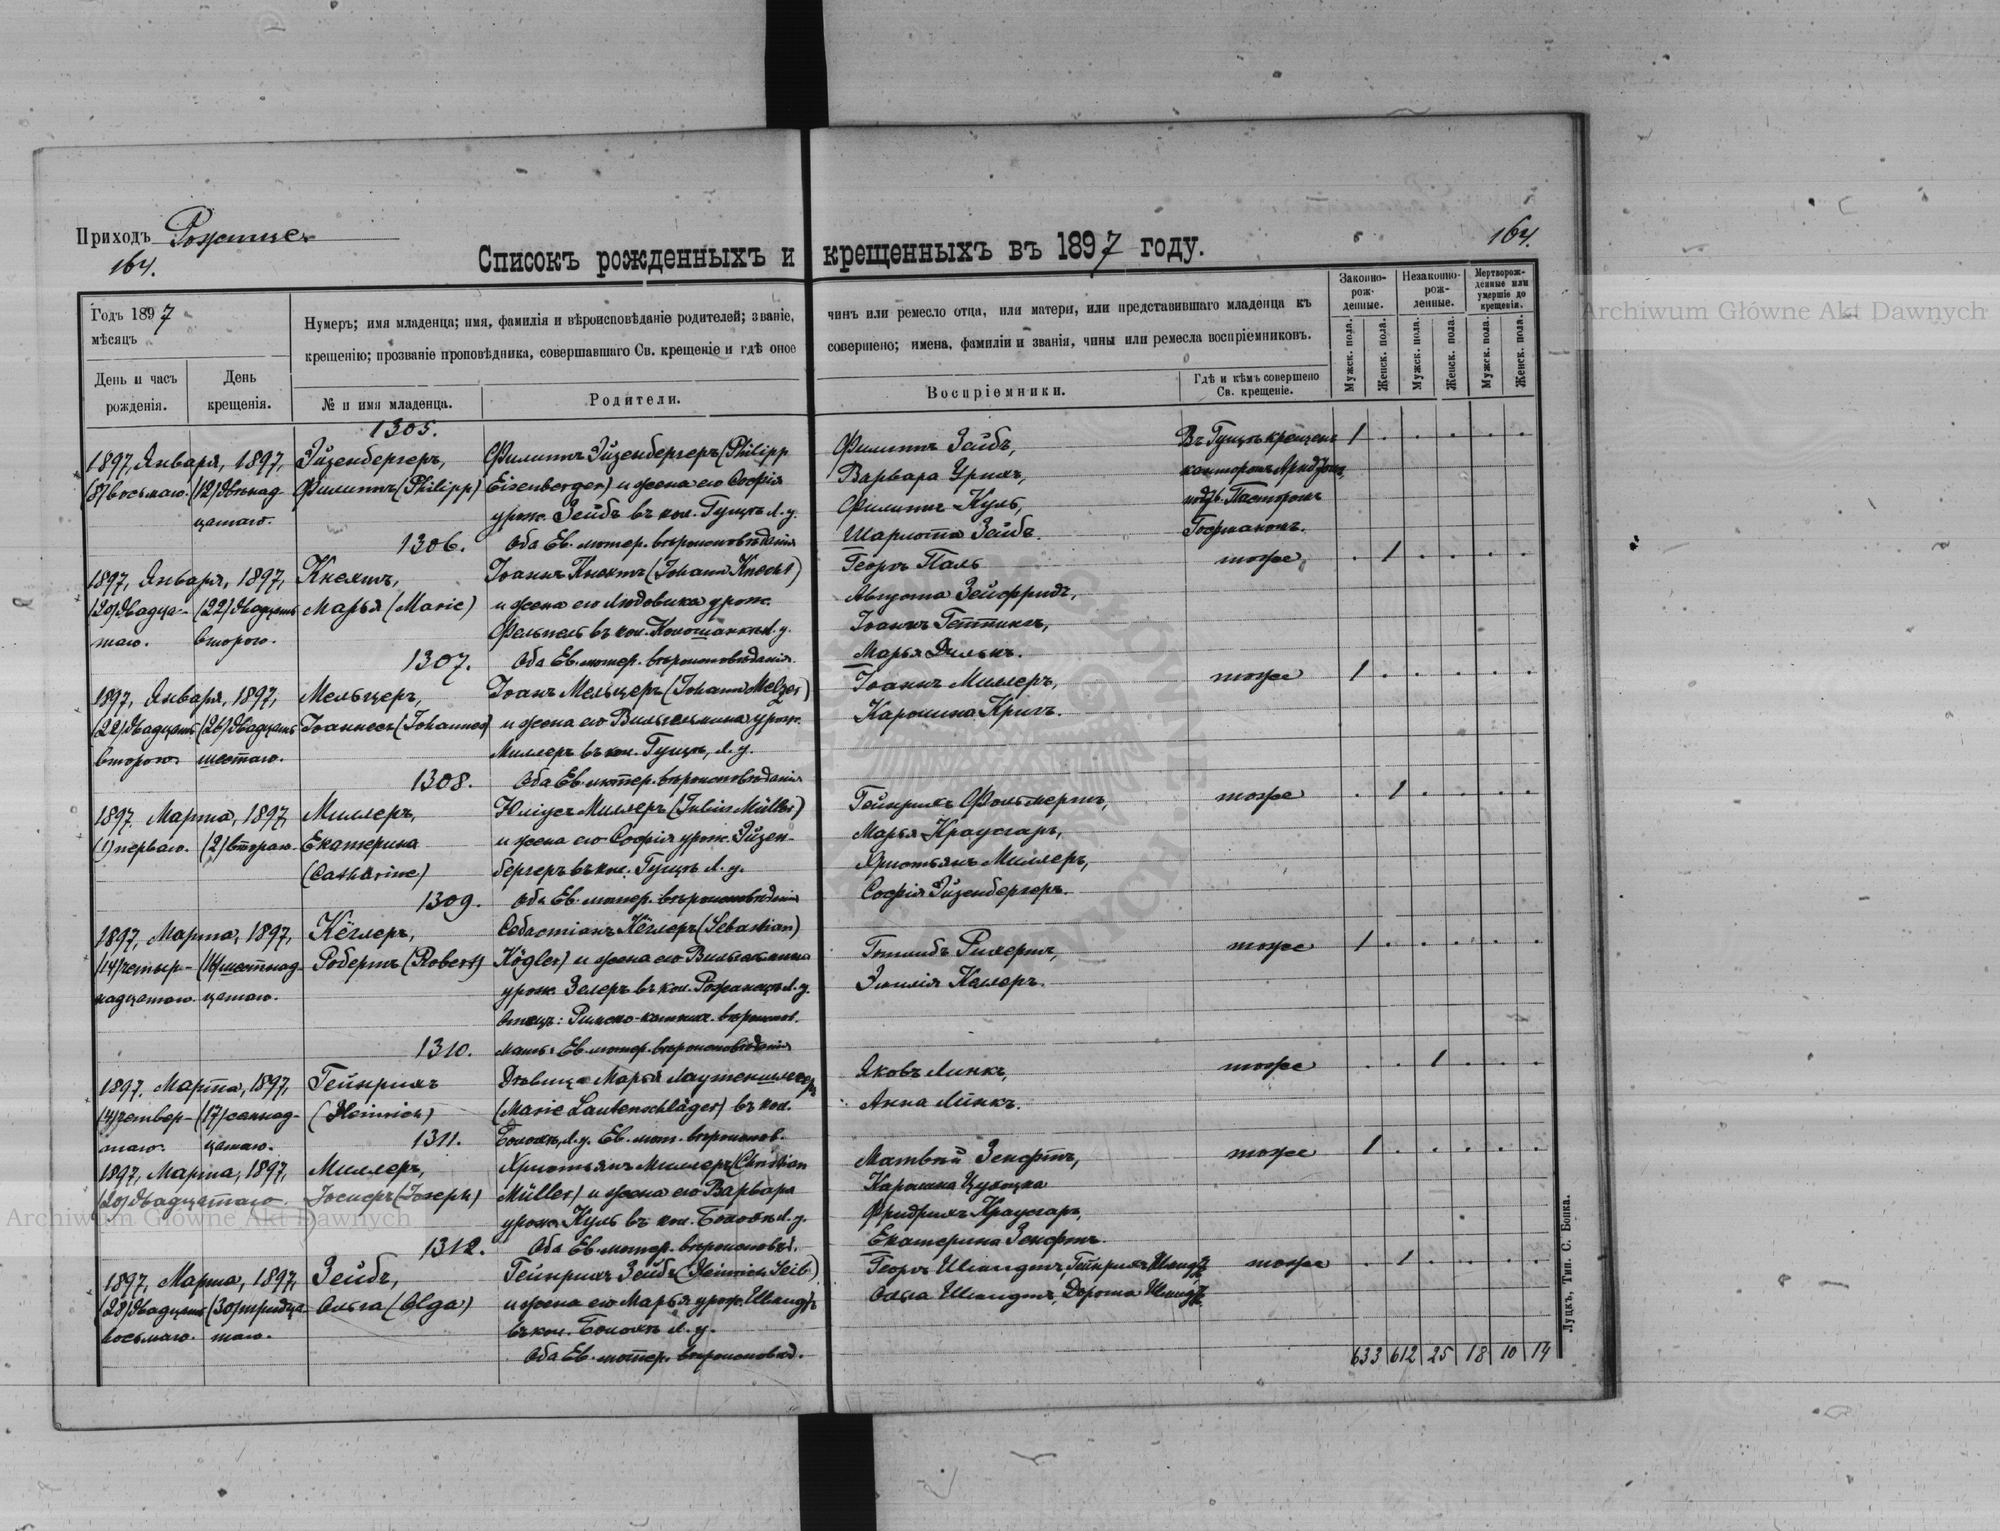 Приходъ Рожище
164.
164.
Списокъ рожденныхъ и крещенныхъ въ 1897 году.
Годъ 1897
мѣсяцъ
День и часъ рожденія.
День крещенія.
Нумеръ; имя младенца; имя, фамилія и вѣроисповѣданіе родителей; званіе, чинъ или ремесло отца, или матери, или представившаго младенца къ
крещенію; прозваніе проповѣдника, совершавшаго Св. крещеніе и гдѣ оное совершено; имена, фамиліи и званія, чины или ремесла воспріемниковъ.
№ и имя младенца.
Родители.
Воспріемники.
Гдѣ и кѣмъ совершено Св. крещеніе.
Законно-рож-денные.
Незаконно-рож-денные.
Мертворож-денные или умершіе до крещенія.
Мужск. пола.
Женск. пола.
Мужск. пола.
Женск. пола.
Мужск. пола.
Женск. пола.
1305.
1897, Января, 1897,
(8) восьмаго. (12) двѣнад-
цатаго.
Эйзенбергеръ,
Филиппъ (Philipp)
Филиппъ Эйзенбергеръ (Philipp
Eisenberger) и жена его Софія
урож. Зейбъ въ кол. Гущѣ Л. у.
Оба Ев. лютер. вѣроисповѣданія
Филиппъ Зейбъ,
Варвара Ірихъ,
Филиппъ Куль,
Шарлота Зейбъ.
Въ Гущѣ крещенъ
канторомъ
подтв. Пасторомъ
1
1306.
1897, Января, 1897,
(20) двадца- (22) двадцать
таго. втораго.
Кнехтъ,
Марья (Marie)
Іоаннъ Кнехтъ (Johann Knecht)
и жена его Людовика урож.
въ кол. Л. у.
Оба Ев. лютер. вѣроисповѣданія.
Георгъ Паль
Августа Зейфридъ,
Іоаннъ
Марья
тоже
1
1307.
1897, Января, 1897,
(22) двадцать (26) двадцать
втораго шестаго.
Мельцеръ,
Іоаннесъ (Johannes)
Іоанъ Мельцеръ (Johann Melzer)
и жена его Вильгельмина урож.
Миллеръ въ кол. Гущѣ, Л. у.
Оба Ев. лютер. вѣроисповѣданія
Іоаннъ Миллеръ,
Каролина Кригъ.
тоже
1
1308.
1897. Марта, 1897,
(1) перваго. (2) втораго.
Миллеръ,
Екатерина
(Catharine)
Юліусъ Миллеръ (Julius Müller)
и жена его Софія урож. Эйзен-
бергеръ въ кол. Гущѣ Л. у.
Оба Ев. лютер. вѣроисповѣданія
Гейнрихъ Фольмертъ,
Марья Краусгаръ,
Христьянъ Миллеръ,
Софія Эйзенбергеръ.
тоже
1
1309.
1897, Марта, 1897,
(14) четыр- (16) шестнад-
надцатаго. цатаго.
Кёглеръ,
Робертъ (Robert)
Себастіанъ Кёглеръ (Sebastian)
Kögler) и жена его Вильгельмина
урож. Зелеръ въ кол. Л. у.
Отецъ: Римско-катол. вѣроиспов.
Мать: Ев. лютер. вѣроисповѣданія
Готлибъ
Эмилія Келлеръ.
тоже
1
1310.
1897. Марта, 1897,
(4) четвер- (17) семнад-
таго. цатаго.
Гейнрихъ
(Heinrich)
Дѣвица Марья Лаутеншлегеръ
(Marie Lautenschläger) въ кол.
Л. у. Ев. лют. вѣроиспов.
Яковъ Линкъ,
Анна Линкъ.
тоже
1
1311.
1897, Марта, 1897,
(20) двадцатаго.
Миллеръ,
Іосифъ (Joseph)
Христьянъ Миллеръ (Christian
Müller) и жена его Варвара
урож. Куль въ кол. Л. у.
Оба Ев. лютер. вѣроисповѣд.
Матвѣй Зенфтъ,
Каролина
Фридрихъ Краусгаръ,
Екатерина Зенфтъ.
тоже
1
1312.
1897, Марта, 1897,
(28) двадцать (30) тридца-
восьмаго. таго.
Зейбъ,
Ольга (Olga)
Гейнрихъ Зейбъ (Heinrich Seib)
и жена его Марья урож. Шмидтъ
въ кол. Л. у.
Оба Ев. лютер. вѣроисповѣд.
Георгъ Шмидтъ, Гейнрихъ Шмидтъ
Ольга Шмидтъ, Дорота Шмидтъ
тоже
1
633 612 25 18 10 14
Луцкъ, Тип. С. Бонка.
Archiwum Główne Akt Dawnych
Archiwum Główne Akt Dawnych